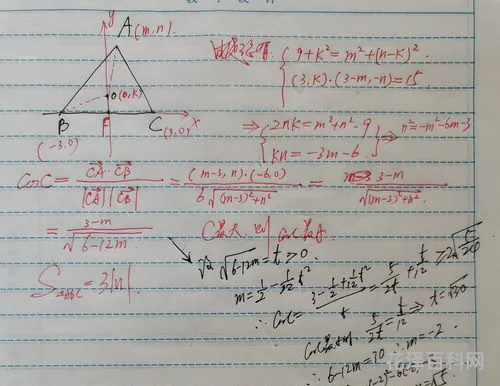 y
A(m,n)
O(0,k)
B
F
C
x
(-3,0)
(3,0)
{ 9+k²=m²+(n-k)²
(3,k)·(3-m,-n)=15
⇒ { 2nk=m²+n²-9
kn=-3m-6
⇒ n²=-m²-6m-3
cosC = CA·CB / |CA||CB| = (m-3,n)·(-6,0) / 6√((m-3)²+n²) = 3-m / √((m-3)²+n²)
= 3-m / √(6-12m)
C最大 则 cosC最小
S△ABC = 3|n|
√(6-12m) = t ≥ 0
m = 1/2 - 1/12 t²
∴ cosC = 3-1/2+1/12 t² / t = 5/2t + t/12 ≥ 2√(5/24)
5/2t = t/12 ⇒ t=√30
∴ 6-12m=30 ∴ m=-2
花泽百科网